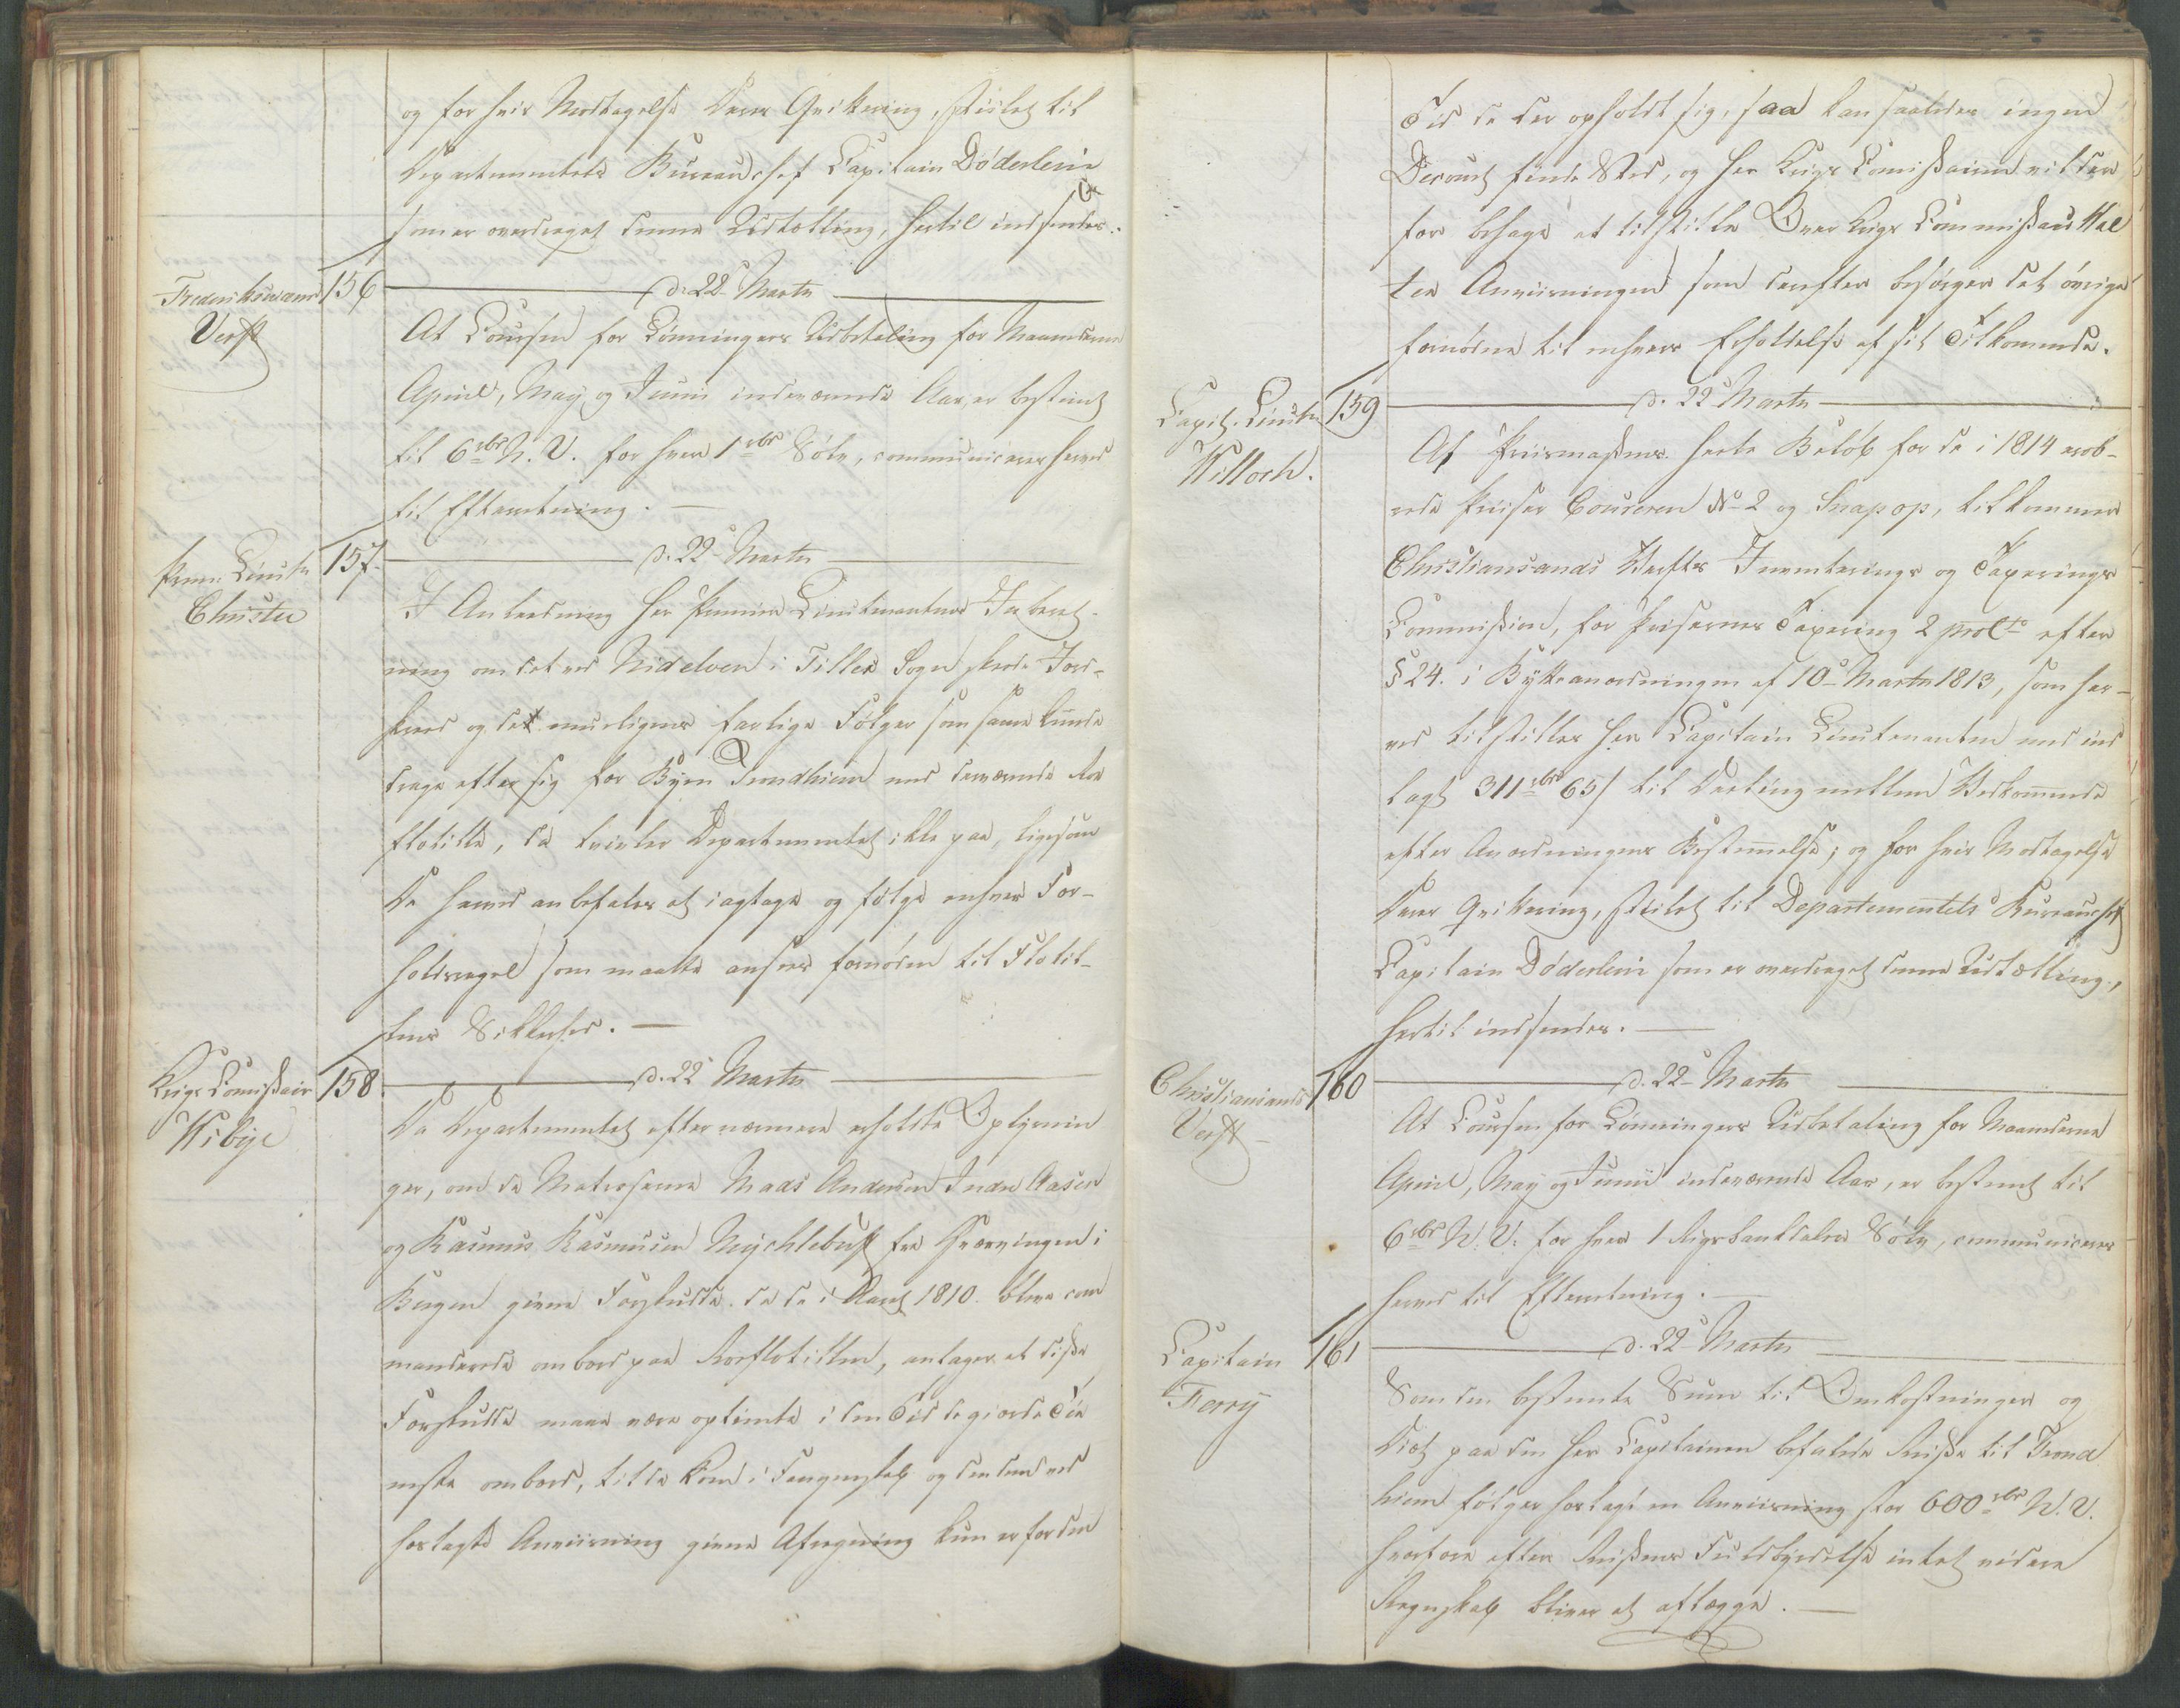 og for hvis Modtagelse Deres Qvittering, stilet til
Departementets Bureauchef Capitain Döderlein
som er overdraget denne Udtælling, hertil indsendes.
Frederiksværns Verft
156
d. 22de Marts
At Coursen for Lönningers Udbetaling for Maanederne
April, May og Junii indeværende Aar, er bestemt
til 6 rbr N. V. for hver 1 rbr Sölv, communiceres herved
til Efterretning.
Prem: Lieutn Christie
157.
d. 22de Marts
I Anledning Hr Premier Lieutenantens Indberet-
ning om det ved Nidelven i Tiller Sogn skede Jord-
skred og det mueligens farlige Fölger som samme kunde
drage efter sig for Byen Trondhiem med derværende Roe
flotille, da tvivler Departementet ikke paa, ligesom
De herved anbefales at iagttage og fölge enhver For-
holdsregel som maatte ansees fornöden til Flotil-
lens Sikkerhed.
Krigs Comissair Wibye
158.
d. 22 Marts
Da Departementet efter nærmere erholdte Oplysnin
ger, om de Matroserne Mads Andersen Indre Aasen
og Rasmus Rasmusen Mychlebust fra Hværvingen i
Bergen givne Forskudde. da de i Aaret 1810. bleve com
manderede ombord paa Roeflotillen, antager at disse
Forskudde maae være optiente i den Tid de giorde Tie
neste ombord, til de kom i Fangenskab og den dem ved
hoslagte Anviisning givne Afregning kun er for den
Tid de der opholdt sig, saa kan saaledes ingen
Decourt finde Sted, og Hr Krigs Comissairen vil der
for behage at tilstille Over Krigs Commissair Møl
ler Anviisningen som derefter besörger det övrige
fornödne til enhvers Erholdelse af sit Tilkommende.
Capit. Lieutn Willoch.
159
d. 22de Marts
Af Priismassens heele Belöb for de i 1814 erob-
rede Priiser Coureren No 2 og Snapop, tilkommer
Christiansands Verfts Inventerings og Taxerings
Commission, for Prisernes Taxering 2 proCto efter
§ 24. i Bytteanordningen af 10de Marts 1813, som her-
ved tilstilles Herr Capitain Lieutenanten med ind
lagt 311 rbr 65 s til Deeling mellem Vedkommende
efter Anordningens Bestemmelse; og for hvis Modtagelse
Deres Qvittering, stilet til Departementets Bureauchef
Capitain Döderlein som er overdraget denne Udtælling,
hertil indsendes.
Christiansands Verft
160
d. 22de Marts
At Coursen for Lönningers Udbetaling for Maanederne
April, May og Junii indeværende Aar, er bestemt til
6 rbr N. V. for hver 1 Rigsbankdaler Sölv, communiceres
herved til Efterretning.
Capitain Ferry
161
d. 22de Marts
Som den bestemte Sum til Omkostninger og
Diæt paa den Herr Capitainen befalede Reise til Trond
hiem fölger hoslagt en Anviisning stor 600 rbr N. V.
hvorfore efter Reisens Fuldbyrdelse intet videre
Regnskab bliver at aflægge.